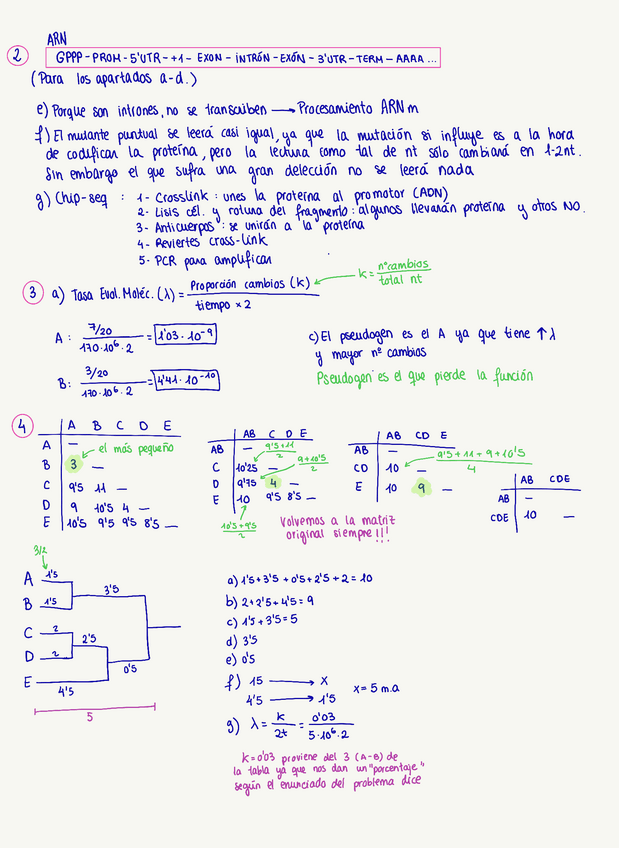 ARN
2 GPPP - PROM - 5'UTR - +1 - EXON - INTRÓN - EXÓN - 3'UTR - TERM - AAAA ...
(Para los apartados a-d.)
e) Porque son intrones, no se transcriben → Procesamiento ARNm
f) El mutante puntual se leerá casi igual, ya que la mutación si influye es a la hora
de codificar la proteína, pero la lectura como tal de nt sólo cambiará en 1-2nt.
Sin embargo el que sufra una gran delección no se leerá nada
g) Chip-seq : 1- Crosslink : unes la proteína al promotor (ADN)
2- Lisis cél. y rotura del fragmento: algunos llevarán proteína y otros NO.
3- Anticuerpos : se unirán a la proteína
4- Reviertes cross-link
5- PCR para amplificar
3 a) Tasa Evol. Moléc. (λ) = Proporción cambios (k) / tiempo × 2
k = nº cambios / total nt
A : 7/20 / 170·10⁶·2 = 1'03·10⁻⁹
B : 3/20 / 170·10⁶·2 = 4'41·10⁻¹⁰
c) El pseudogen es el A ya que tiene ↑λ
y mayor nº cambios
Pseudogen es el que pierde la función
4
A B C D E
A —
B 3 —
C 9'5 11 —
D 9 10'5 4 —
E 10'5 9'5 9'5 8'5 —
el más pequeño
AB C D E
AB —
C 10'25 —
D 9'75 4 —
E 10 9'5 8'5 —
9'5+11 / 2
9+10'5 / 2
10'5+9'5 / 2
Volvemos a la matriz
original siempre!!!
AB CD E
AB —
CD 10 —
E 10 9 —
9'5+11+9+10'5 / 4
AB CDE
AB —
CDE 10 —
3/2
A 1'5
3'5
B 1'5
C 2
2'5
D 2
0'5
E 4'5
5
a) 1'5+3'5+0'5+2'5+2=10
b) 2+2'5+4'5=9
c) 1'5+3'5=5
d) 3'5
e) 0'5
f) 15 → X
4'5 → 1'5
x=5 m.a
g) λ = k / 2t = 0'03 / 5·10⁶·2
k=0'03 proviene del 3 (A-B) de
la tabla ya que nos dan un "porcentaje"
según el enunciado del problema dice